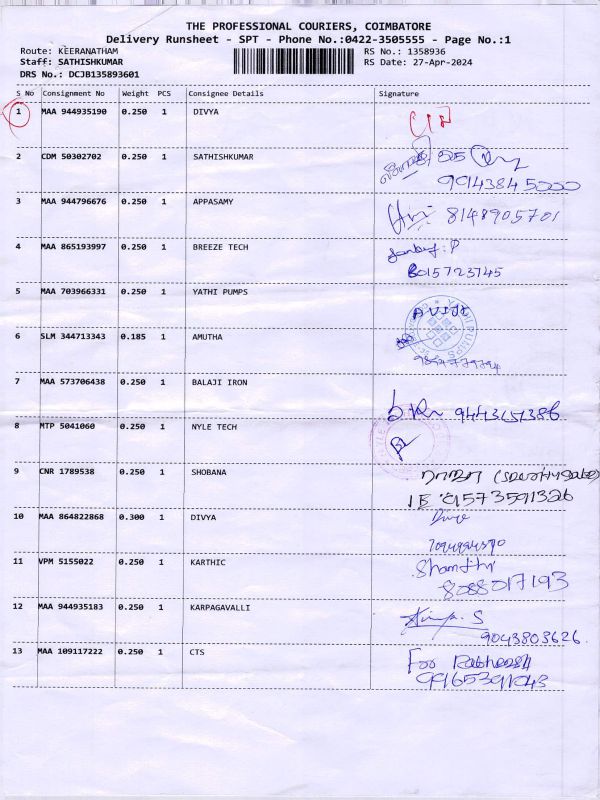 THE PROFESSIONAL COURIERS, COIMBATORE
Delivery Runsheet - SPT - Phone No.:0422-3505555 - Page No.:1
Route: KEERANATHAM
RS No.: 1358936
Staff: SATHISHKUMAR
RS Date: 27-Apr-2024
DRS No.: DCJB135893601
S No Consignment No Weight PCS Consignee Details Signature
1 MAA 944935190 0.250 1 DIVYA
2 CDM 50302702 0.250 1 SATHISHKUMAR
99143845000
3 MAA 944796676 0.250 1 APPASAMY 8148905701
4 MAA 865193997 0.250 1 BREEZE TECH
8015723745
5 MAA 703966331 0.250 1 YATHI PUMPS
YATHI PUMPS
6 SLM 344713343 0.185 1 AMUTHA
7 MAA 573706438 0.250 1 BALAJI IRON
8 MTP 5041060 0.250 1 NYLE TECH
9 CNR 1789538 0.250 1 SHOBANA
10 MAA 864822868 0.300 1 DIVYA
11 VPM 5155022 0.250 1 KARTHIC
8088017193
12 MAA 944935183 0.250 1 KARPAGAVALLI
9043803626
13 MAA 109117222 0.250 1 CTS For